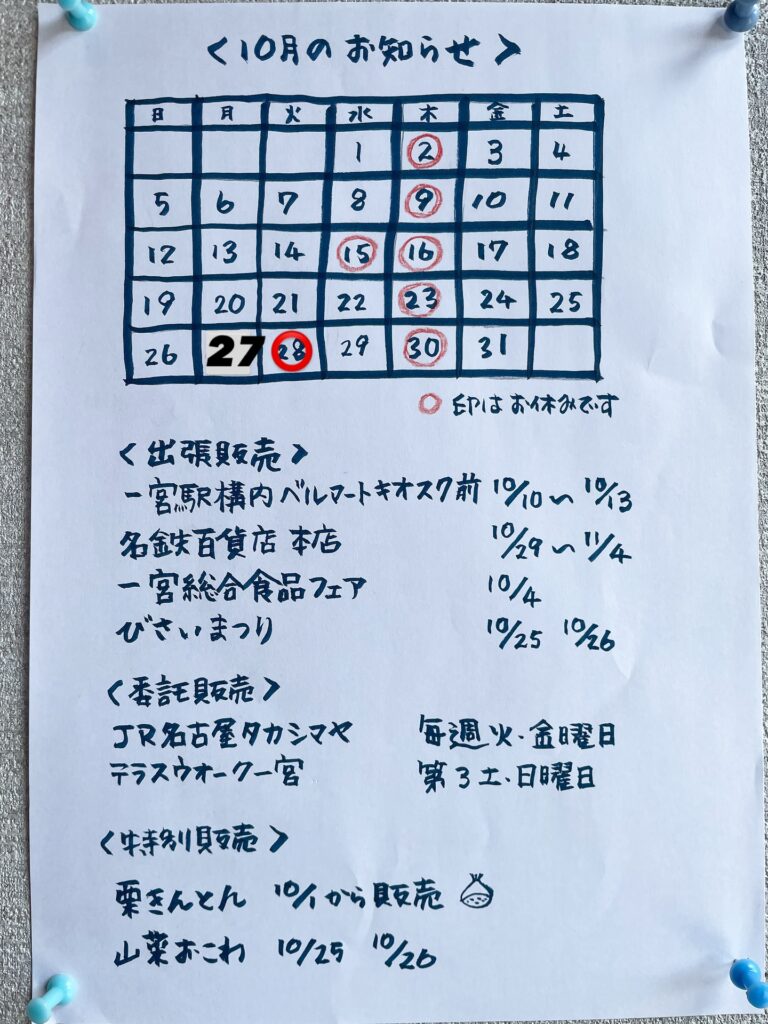 〈10月のお知らせ〉
日 月 火 水 木 金 土
1 2 3 4
5 6 7 8 9 10 11
12 13 14 15 16 17 18
19 20 21 22 23 24 25
26 27 28 29 30 31
○印はお休みです
〈出張販売〉
一宮駅構内ベルマートキオスク前 10/10〜10/13
名鉄百貨店 本店 10/29〜11/4
一宮総合食品フェア 10/4
びさいまつり 10/25 10/26
〈委託販売〉
JR名古屋タカシマヤ 毎週火・金曜日
テラスウオーク一宮 第3土・日曜日
〈特別販売〉
栗きんとん 10/1から販売
山菜おこわ 10/25 10/26